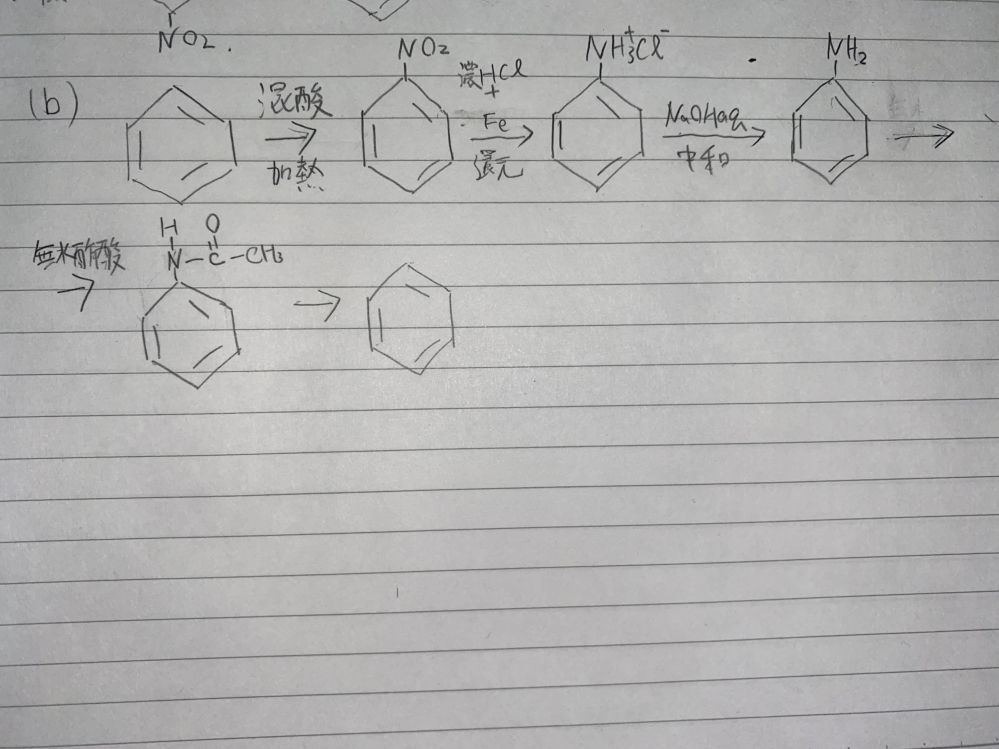 NO2.
(b) 混酸 加熱 NO2 濃HCl + Fe 還元 NH3+Cl- NaOHaq 中和 NH2
無水酢酸 H O N-C-CH3